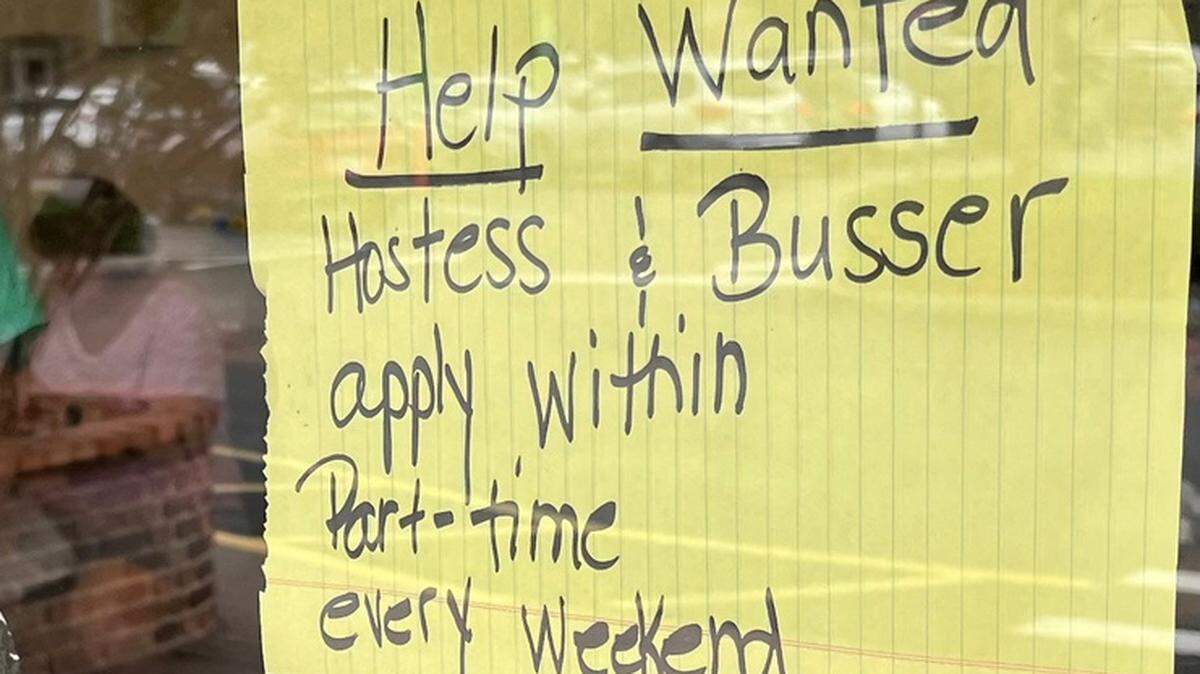 Help Wanted
Hostess & Busser
apply within
Part-time
every weekend